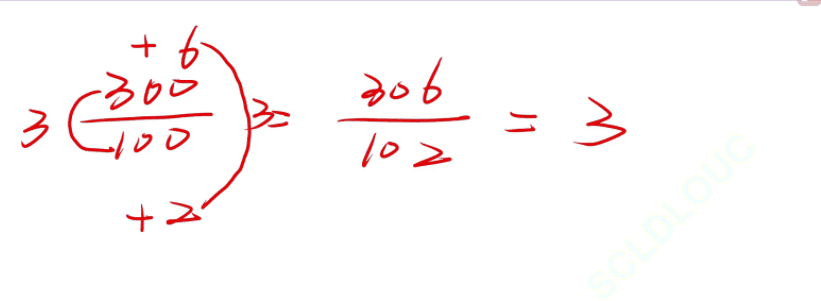 + 6
3 300/100 3 = 306/102 = 3
+ 2
SCLDLOUC